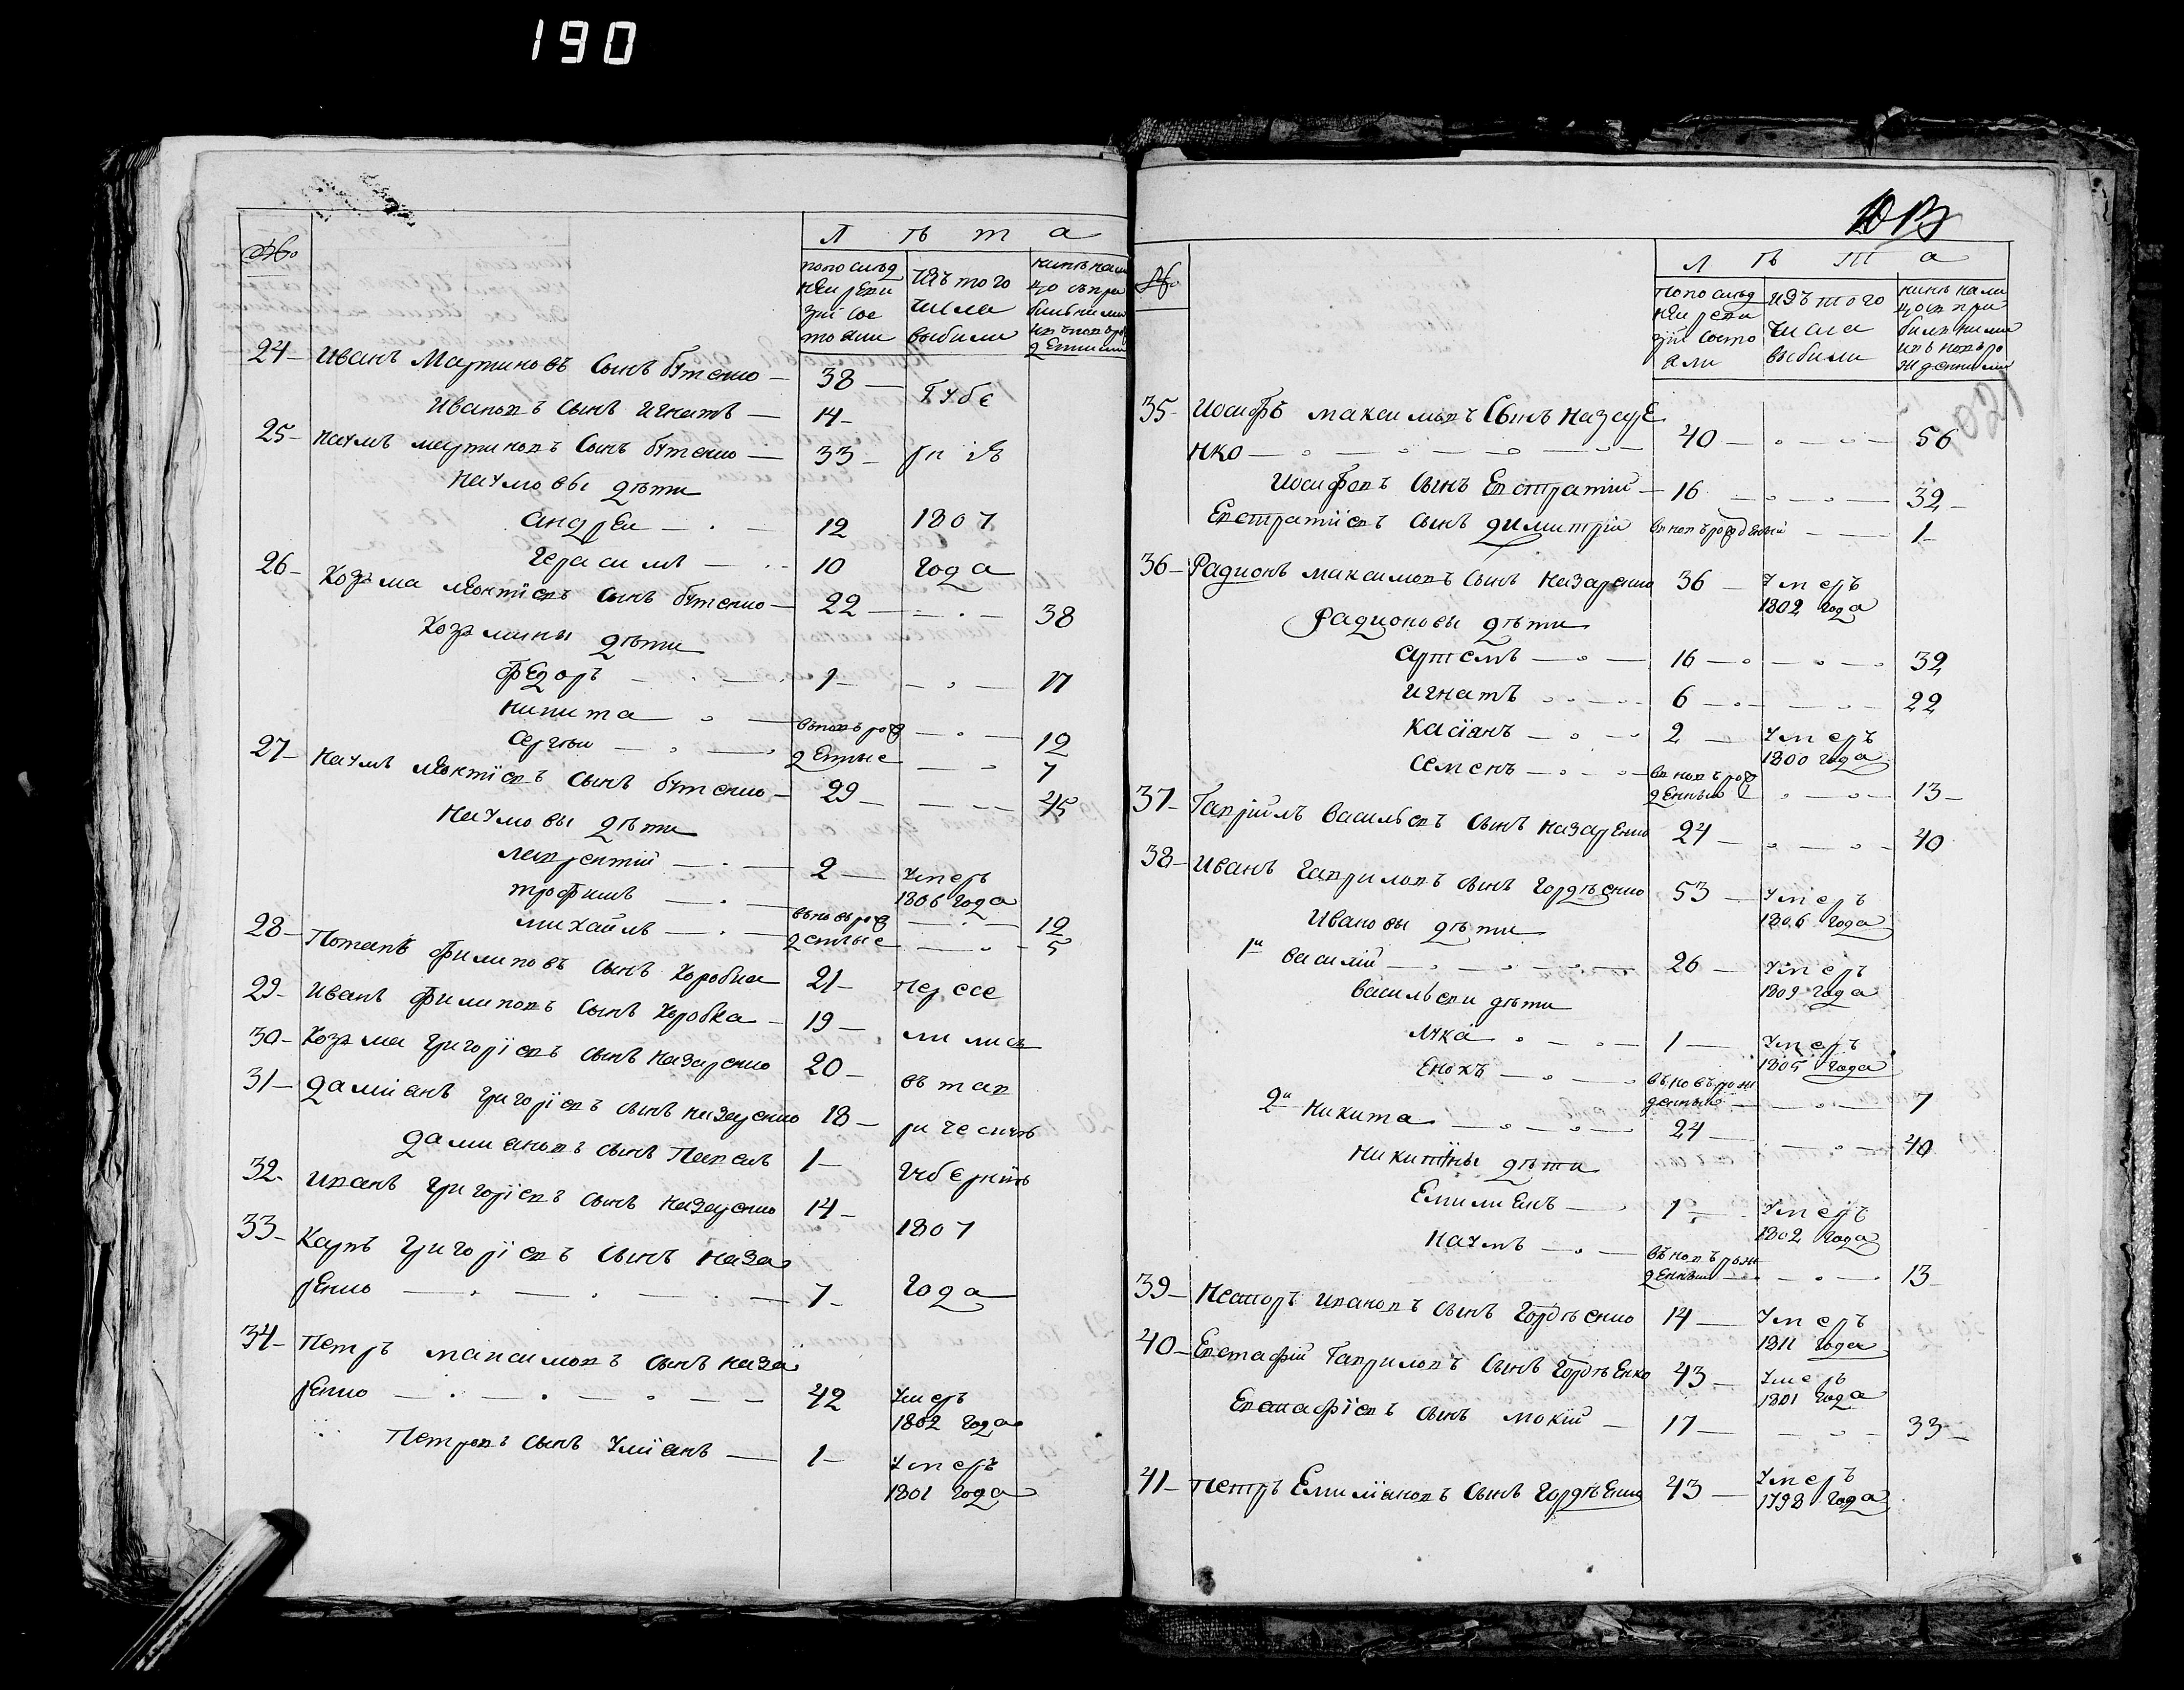 190
№
Л ѣ т а
по послѣд
ней реви
зіи сос
тояли
изъ того
числа
выбыли
нинѣ на ли
цо съ при
былыми
и въ новь рож
деными
24 Иванъ Мартиновъ Сынъ бутенко 38
Ивановъ Сынъ Игнатъ 14 Губе
25 Наумъ мартиновъ Сынъ бутенко 33 рніѣ
Наумовы дѣти
Андрей 12 1807
Герасимъ 10 Года
26 Козьма Леонтіевъ Сынъ бутенко 22 38
Козьмины дѣти
Федоръ 1 17
Никита въ новь рож 12
Сергѣй деные 7
27 Наумъ Леонтіевъ Сынъ бутенко 29 45
Наумовы дѣти
Лаврентій 2 Умеръ
1806 Года
трофимъ въ новь рож 12
михайлъ деные 5
28 Потапъ Филиповъ Сынъ Коробка 21 Пересе
29 Иванъ Филиповъ Сынъ Коробка 19 лились
30 Козьма Григоріевъ Сынъ Назаренко 20 въ тав
31 Даміанъ Григоріевъ Сынъ Назаренко 18 рическую
Даміановъ Сынъ Павелъ 1 Губернію
32 Иванъ Григоріевъ Сынъ Назаренко 14 1807
33 Карпъ Григоріевъ Сынъ Наза
ренко 7 Года
34 Петръ максимовъ Сынъ Наза
ренко 42 Умеръ
1802 Года
Петровъ Сынъ Уліанъ 1 Умеръ
1801 Года
№
Л ѣ т а
по послѣд
ней реви
зіи состо
яли
изъ того
числа
выбыли
нинѣ на ли
цо съ при
былыми
и въ новь ро
жденными
35 Иосифъ максимовъ Сынъ Назаре
нко 40 56
Иосифовъ Сынъ Евстратій 16 32
Евстратіевъ Сынъ димитрій въ новь рожденый 1
36 Радионъ максимовъ Сынъ Назаренко 36 Умеръ
1802 Года
Радионовы дѣти
Артемъ 16 32
Игнатъ 6 22
Касіанъ 2 Умеръ
1800 Года
Семенъ въ новь рож
денный 13
37 Гавріилъ Васильевъ Сынъ Назаренко 24 40
38 Иванъ Гавриловъ Сынъ Гордѣенко 53 Умеръ
1806 Года
Ивановы дѣти
1й Василій 26 Умеръ
1809 Года
Васильеви дѣти
Лука 1 Умеръ
1805 Года
Енохъ въ новь рож
денный 7
2й Никита 24 40
Никитины дѣти
Емилианъ 1 Умеръ
1802 Года
Наумъ въ новь рож
денный 13
39 Несторъ Ивановъ Сынъ Гордѣенко 14 Умеръ
1811 Года
40 Евстафій Гавриловъ Сынъ Гордѣенко 43 Умеръ
1801 Года
Евстафіевъ Сынъ мокій 17 33
41 Петръ Емиліановъ Сынъ Гордѣенко 43 Умеръ
1798 Года